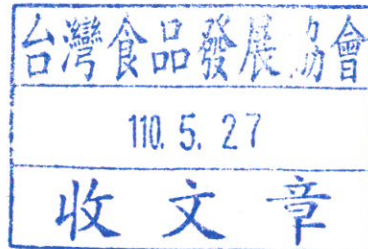 台灣食品發展協會
110. 5. 27
收文章